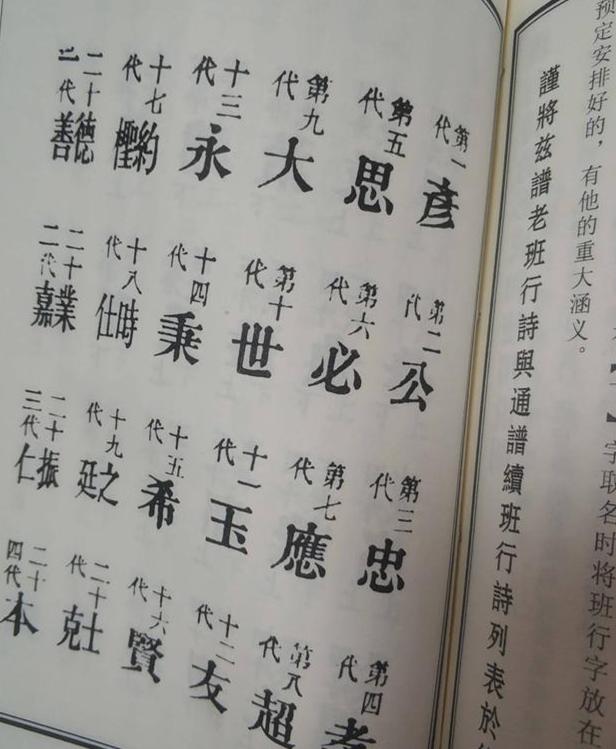 字取名时将班行字放在
预定安排好的，有他的重大涵义。
謹將兹譜老班行詩與通譜續班行詩列表於
第一代 彥
第二代 公
第三代 忠
第四代 孝
第五代 思
第六代 必
第七代 應
第八代 超
第九代 大
第十代 世
十一代 玉
十二代 友
十三代 永
十四代 秉
十五代 希
十六代 賢
十七代 約樫
十八代 時仕
十九代 之廷
二十代 士克
二十一代 德善
二十二代 業嘉
二十三代 振仁
二十四代 本